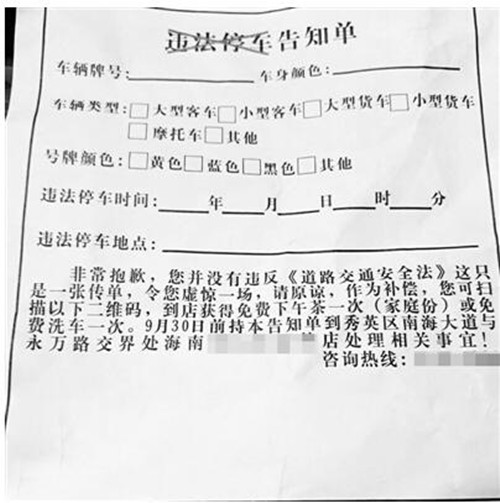 违法停车告知单
车辆牌号： 车身颜色：
车辆类型：□大型客车□小型客车□大型货车□小型货车
□摩托车□其他
号牌颜色：□黄色□蓝色□黑色□其他
违法停车时间： 年 月 日 时 分
违法停车地点：
非常抱歉，您并没有违反《道路交通安全法》这只
是一张传单，令您虚惊一场，请原谅，作为补偿，您可扫
描以下二维码，到店获得免费下午茶一次（家庭份）或免
费洗车一次。9月30日前持本告知单到秀英区南海大道与
永万路交界处海南 店处理相关事宜！
咨询热线：